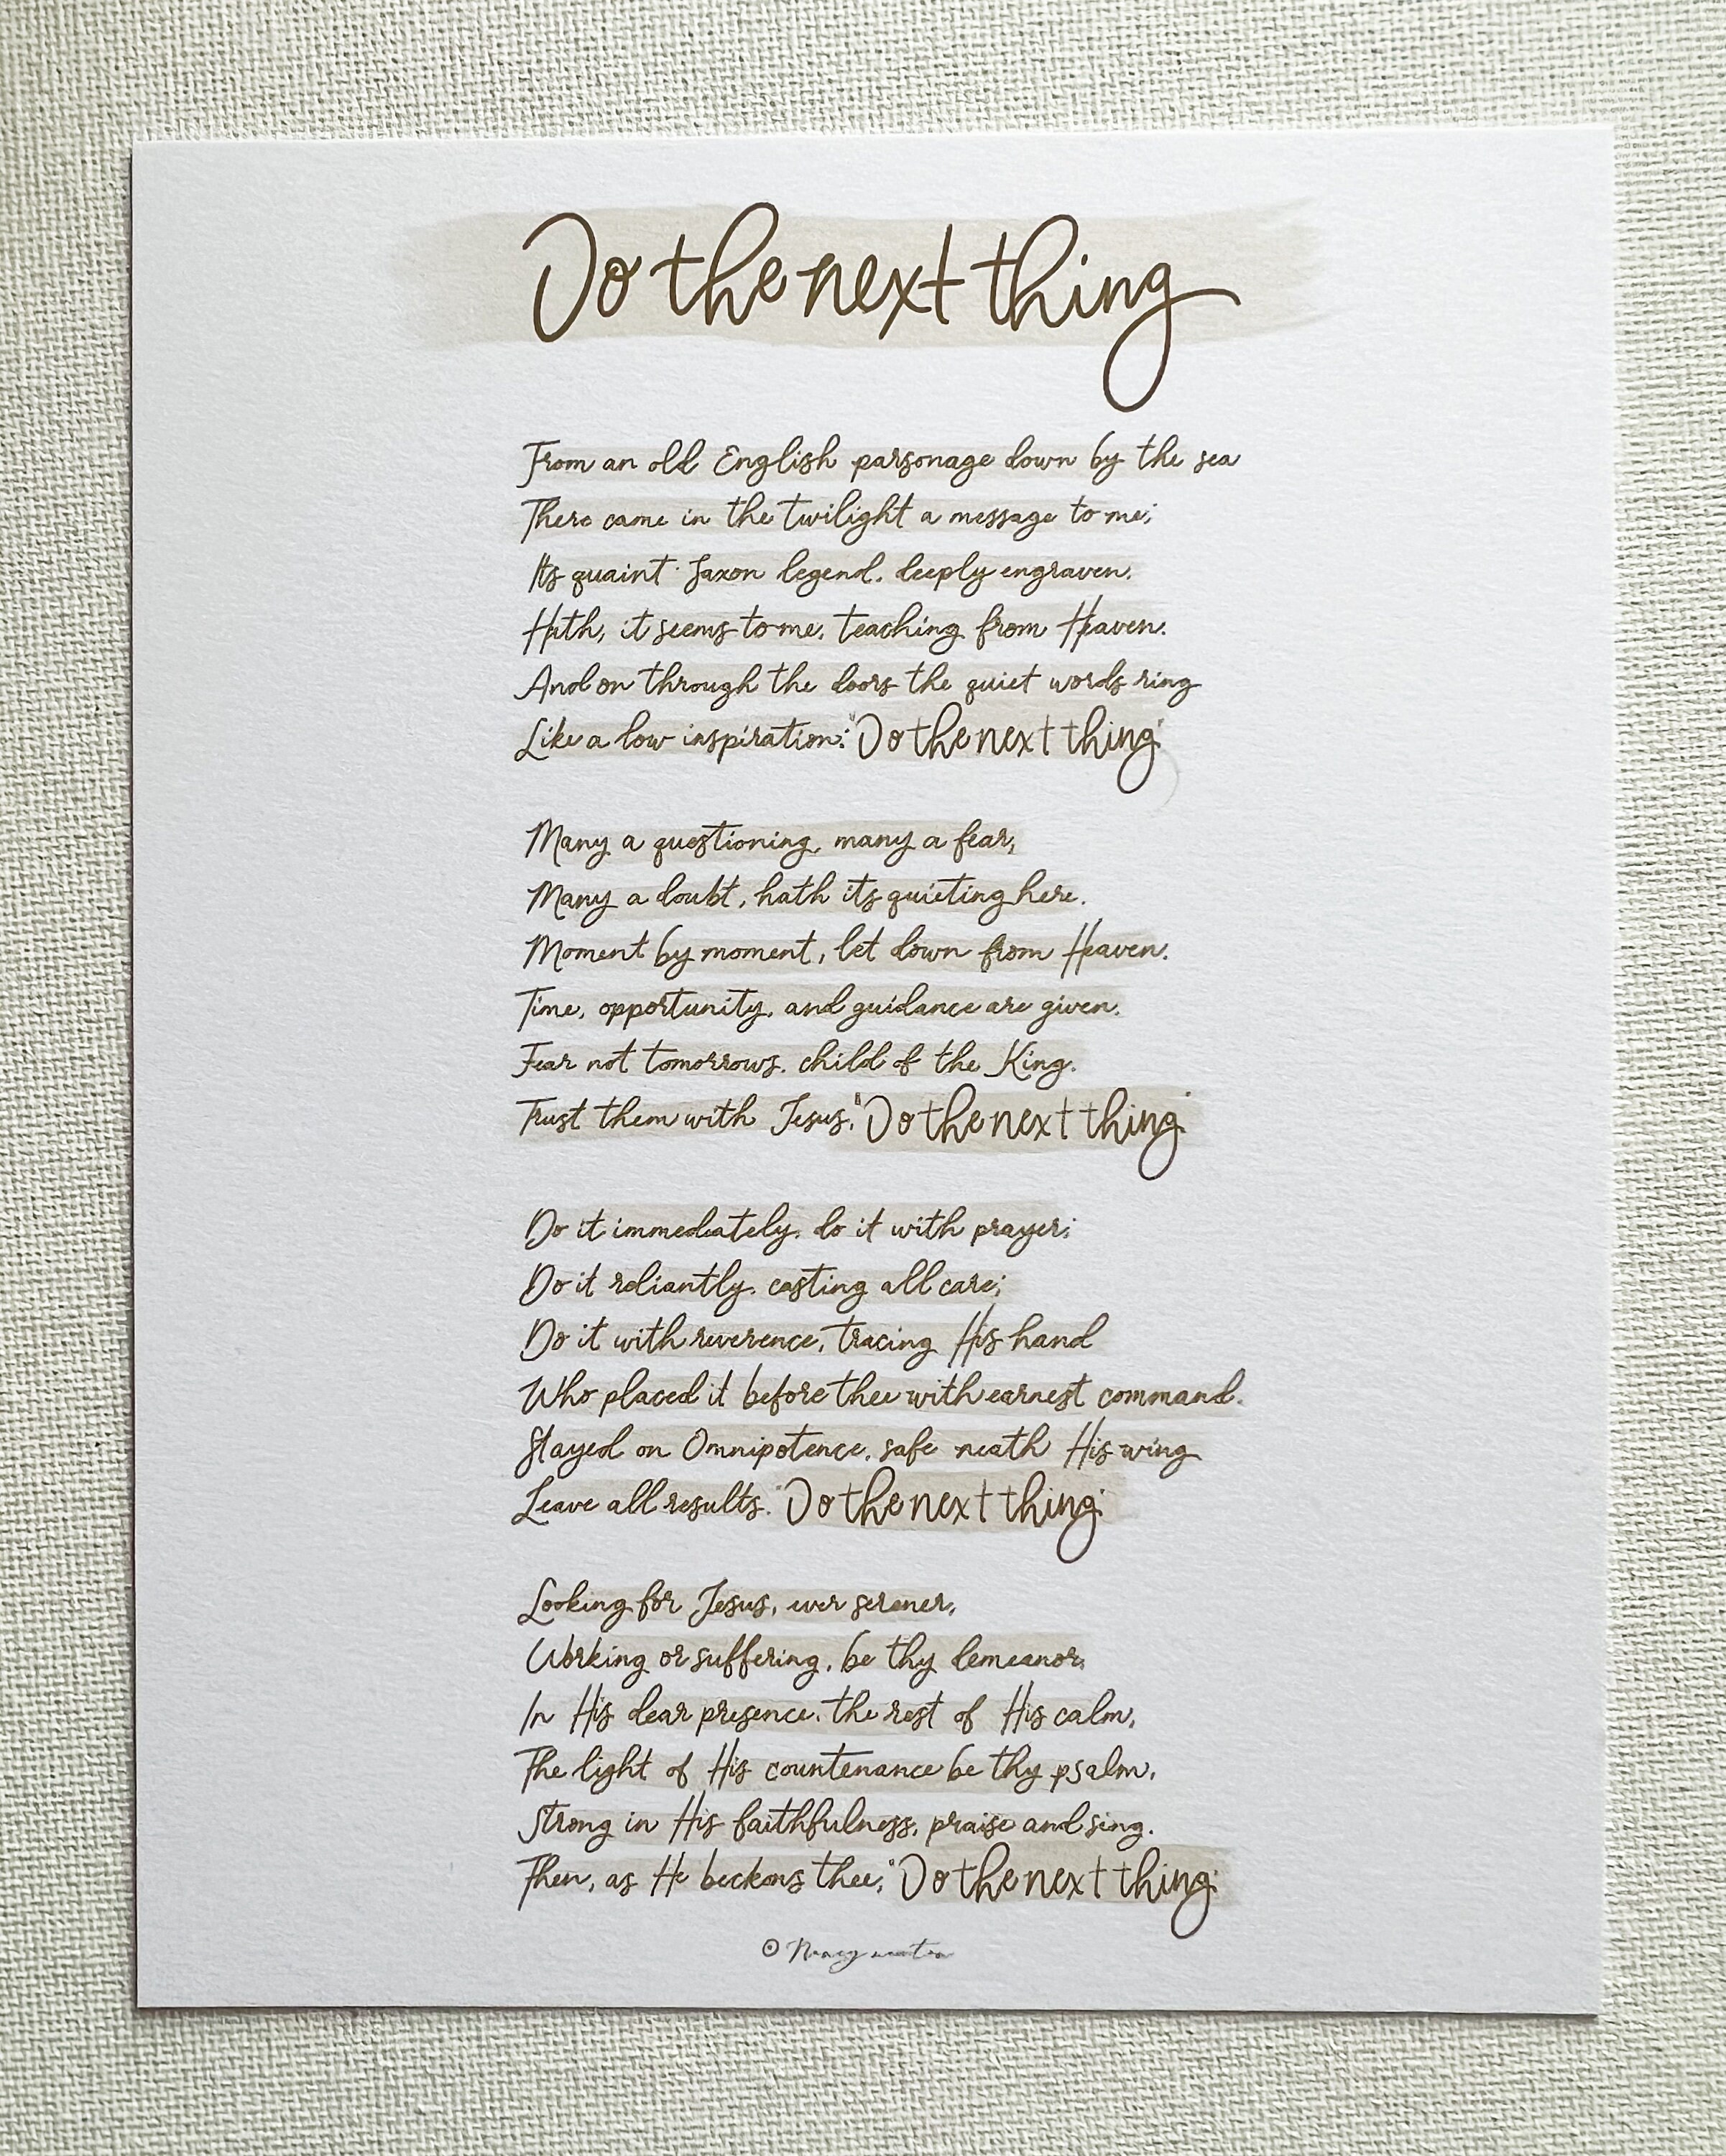 Do the next thing
From an old English parsonage down by the sea
There came in the twilight a message to me;
Its quaint Saxon legend, deeply engraven,
Hath, it seems to me, teaching from Heaven.
And on through the doors the quiet words ring
Like a low inspiration: "Do the next thing"
Many a questioning, many a fear,
Many a doubt, hath its quieting here.
Moment by moment, let down from Heaven,
Time, opportunity, and guidance are given.
Fear not tomorrows, child of the King,
Trust them with Jesus, "Do the next thing"
Do it immediately, do it with prayer;
Do it reliantly, casting all care;
Do it with reverence, tracing His hand
Who placed it before thee with earnest command.
Stayed on Omnipotence, safe neath His wing
Leave all results. "Do the next thing"
Looking for Jesus, ever serener,
Working or suffering, be thy demeanor,
In His dear presence, the rest of His calm,
The light of His countenance be thy psalm,
Strong in His faithfulness, praise and sing.
Then, as He beckons thee, "Do the next thing"
© Nancy